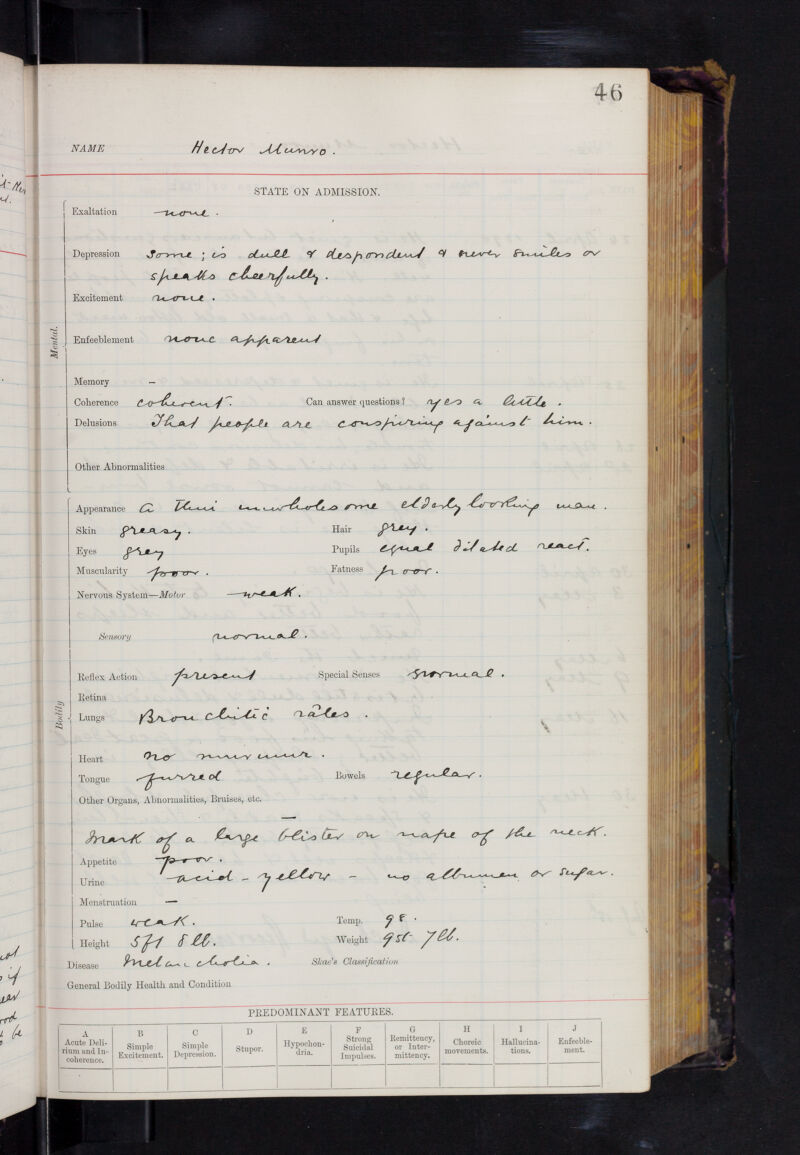 46
NAME Hector Munro.
STATE ON ADMISSION.
Mental.
Exaltation none.
Depression Some; is dull & despondent & never smiles or
speaks cheerfully.
Excitement none.
Enfeeblement none apparent
Memory –
Coherence coherent. Can answer questions? yes a little.
Delusions That people are conspiring against him.
Other Abnormalities
Bodily
Appearance a thin unwholesome elderly looking man.
Skin greasy. Hair grey.
Eyes grey Pupils equal dilated react.
Muscularity poor. Fatness poor.
Nervous System—Motor weak.
Sensory normal.
Reflex Action present Special Senses normal.
Retina
Lungs Bronchitic râles.
Heart no murmur.
Tongue furred Bowels regular.
Other Organs, Abnormalities, Bruises, etc. —
Mark of a large blister on nape of the neck.
Appetite poor.
Urine acid - yellow - no albumen or sugar.
Menstruation —
Pulse weak. Temp. 98.
Height 5ft 8 lb. Weight 9st 7lb.
Disease Melancholia. Skae's Classification
General Bodily Health and Condition
PREDOMINANT FEATURES.
A B C D E F G H I J
Acute Delirium and Incoherence. Simple Excitement. Simple Depression. Stupor. Hypochondria. Strong Suicidal Impulses. Remittency, or Intermittency. Choreic movements. Hallucinations. Enfeeblement.